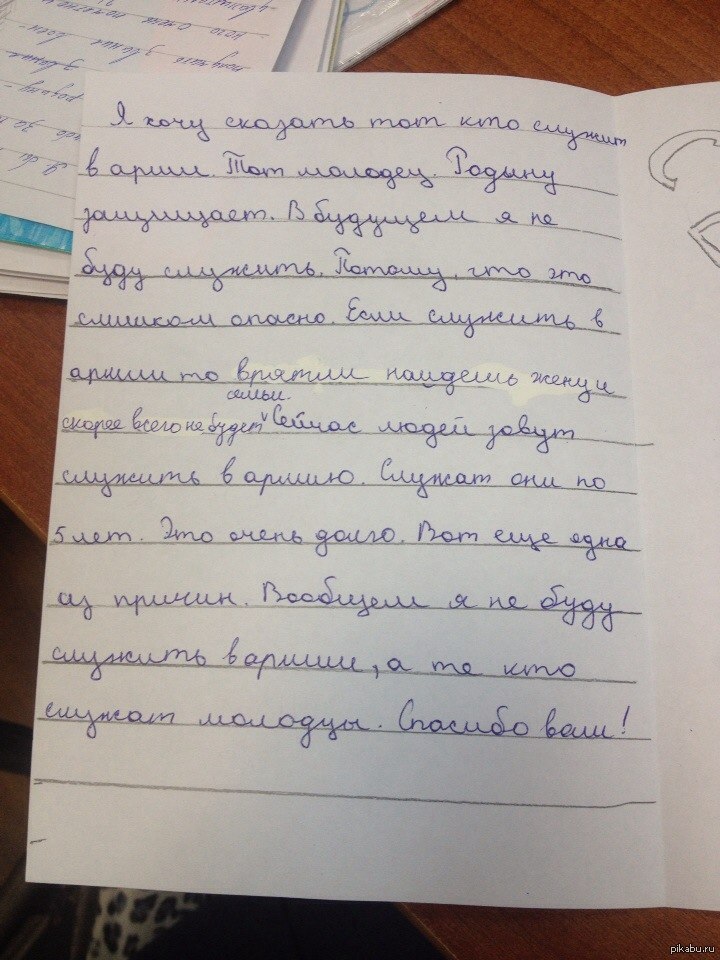 Я хочу сказать тот кто служит
в армии. Тот молодец. Родыну
защищает. В будущем я не
буду служить. Потому, что это
слишком опасно. Если служить в
армии то врятли найдешь жену и
семьи.
скорее всего не будет Сейчас людей зовут
служить в армию. Служат они по
5 лет. Это очень долго. Вот еще една
из причин. Вообщем я не буду
служить в армии, а те кто
служат молодцы. Спасибо вам!
pikabu.ru